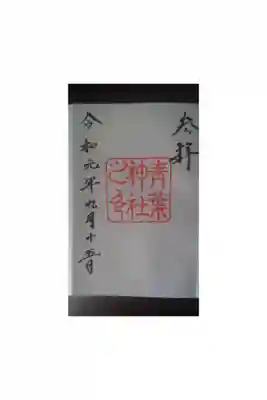 参拝
青葉
神社
之印
令和元年九月十五日